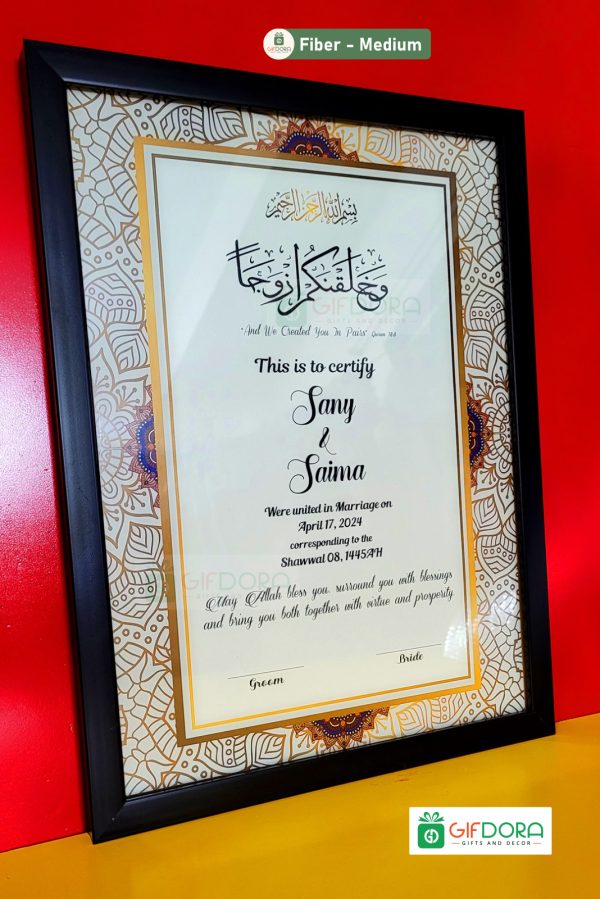 GIFDORA
Fiber - Medium
بسم الله الرحمن الرحيم
وخلقنكم ازوجا
GIFDORA
GIFTS AND DECOR
"And We Created You In Pairs" Quran 78:8
This is to certify
Sany
&
Saima
Were united in Marriage on
April 17, 2024
corresponding to the
Shawwal 08, 1445AH
GIFDORA
May Allah bless you, surround you with blessings
and bring you both together with virtue and prosperity.
Groom
Bride
GIFDORA
GIFTS AND DECOR